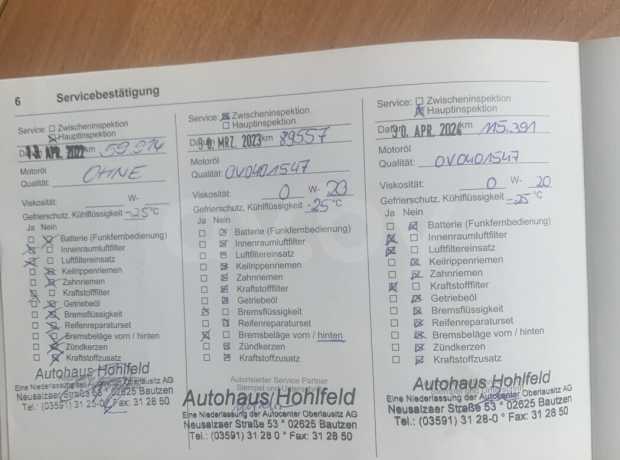 6 Servicebestätigung
Service: Zwischeninspektion
Hauptinspektion
APR. 2022 km 59 914
Motoröl
Qualität: OHNE
Viskosität: W-
Gefrierschutz, Kühlflüssigkeit -25°C
Ja Nein
Batterie (Funkfernbedienung)
Innenraumluftfilter
Luftfiltereinsatz
Keilrippenriemen
Zahnriemen
Kraftstofffilter
Getriebeöl
Bremsflüssigkeit
Reifenreparaturset
Bremsbeläge vorn / hinten
Zündkerzen
Kraftstoffzusatz
Autohaus Hohlfeld
Eine Niederlassung der Autocenter Oberlausitz AG
Neusalzaer Straße 53 * 02625 Bautzen
Tel.: (03591) 31 28-0 * Fax: 31 28 50
Service: Zwischeninspektion
Hauptinspektion
MRZ. 2023 km 89557
Motoröl
Qualität: OV0401547
Viskosität: 0 W- 20
Gefrierschutz, Kühlflüssigkeit -25°C
Ja Nein
Batterie (Funkfernbedienung)
Innenraumluftfilter
Luftfiltereinsatz
Keilrippenriemen
Zahnriemen
Kraftstofffilter
Getriebeöl
Bremsflüssigkeit
Reifenreparaturset
Bremsbeläge vorn / hinten
Zündkerzen
Kraftstoffzusatz
Autorisierter Service Partner
Stempel und Unterschrift
Autohaus Hohlfeld
Eine Niederlassung der Autocenter Oberlausitz AG
Neusalzaer Straße 53 * 02625 Bautzen
Tel.: (03591) 31 28 0 * Fax: 31 28 50
Service: Zwischeninspektion
Hauptinspektion
APR. 2024 km 115.391
Motoröl
Qualität: OV0401547
Viskosität: 0 W- 20
Gefrierschutz, Kühlflüssigkeit -25°C
Ja Nein
Batterie (Funkfernbedienung)
Innenraumluftfilter
Luftfiltereinsatz
Keilrippenriemen
Zahnriemen
Kraftstofffilter
Getriebeöl
Bremsflüssigkeit
Reifenreparaturset
Bremsbeläge vorn / hinten
Zündkerzen
Kraftstoffzusatz
Autohaus Hohlfeld
Eine Niederlassung der Autocenter Oberlausitz AG
Neusalzaer Straße 53 * 02625 Bautzen
Tel.: (03591) 31 28-0 * Fax: 31 28 50